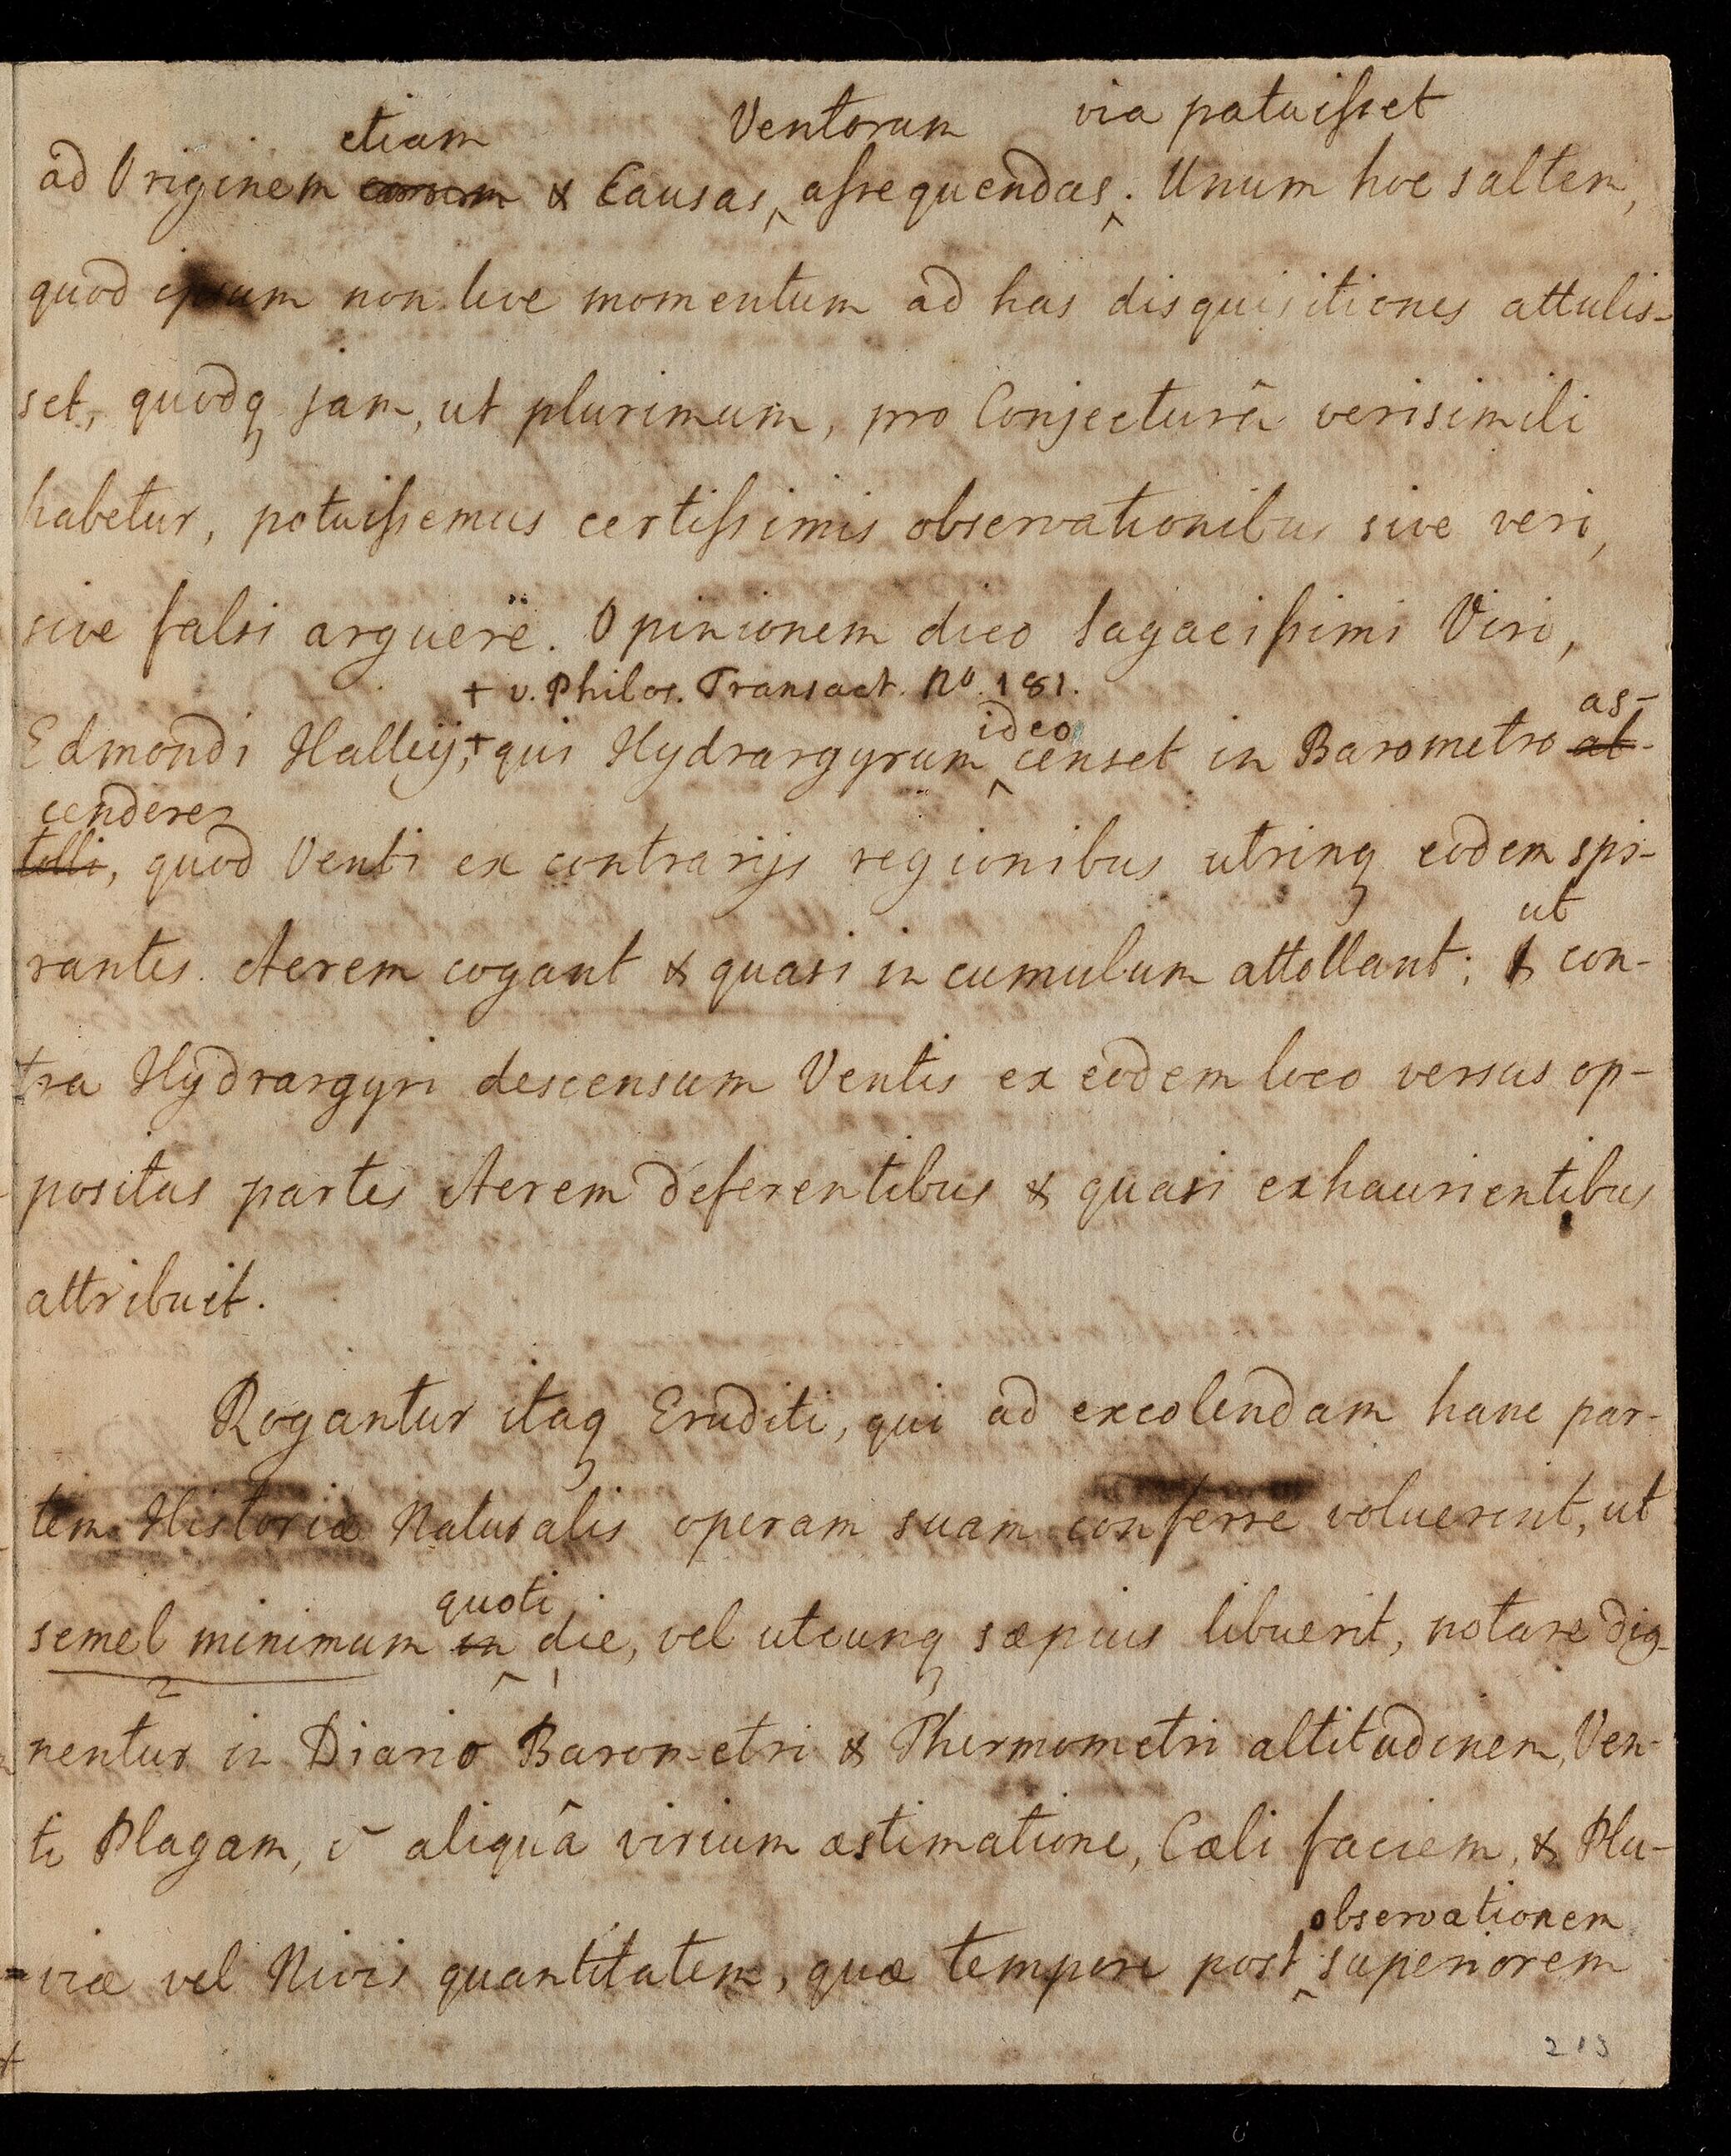 etiam Ventorum via patuisset
ad Originem earum & Causas assequendas. Unum hoc saltem,
quod ipsum non leve momentum ad has disquisitiones attulis-
set, quodq jam, ut plurimum, pro Conjecturâ verisimili
habetur, potuissemus certissimis observationibus sive veri,
sive falsi arguere. Opinionem dico Sagacissimi Viri,
+ v. Philos. Transact. No. 181.
ideo as-
Edmondi Halleij,+ qui Hydrargyrum censet in Barometro at-
cendere
tolli, quod Venti ex contrarijs regionibus utrinq eodem spi-
ut
rantes Aerem cogant & quasi in cumulum attollant; & con-
tra Hydrargyri descensum Ventis ex eodem loco versus op-
positas partes Aerem deferentibus & quasi exhaurientibus
attribuit.
Rogantur itaq Eruditi, qui ad excolendam hanc par-
tem Historiæ Naturalis operam suam conferre voluerint, ut
quoti
semel minimum in die, vel utcunq sæpius libuerit, notare dig-
2 1
nentur in Diario Barometri & Thermometri altitudinem, Ven-
ti Plagam, c̄ aliquâ virium æstimatione, Cæli faciem, & Plu-
observationem
viæ vel Nivis quantitatem, quæ tempore post superiorem
213